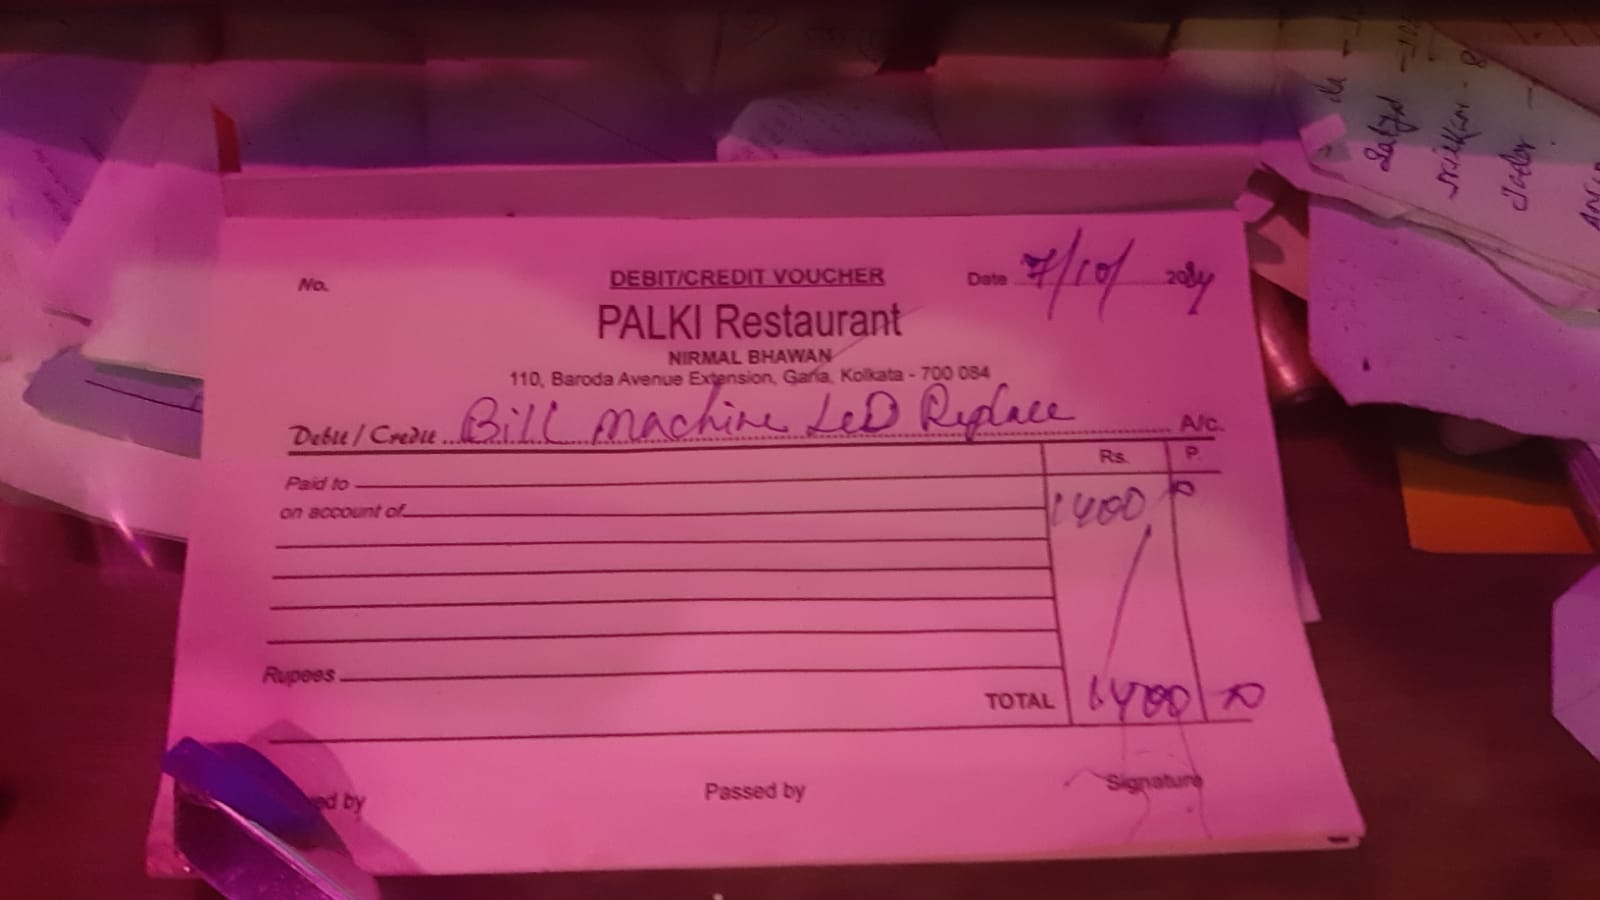 No.
DEBIT/CREDIT VOUCHER
Date 7/10/ 2024
PALKI Restaurant
NIRMAL BHAWAN
110, Baroda Avenue Extension, Garia, Kolkata - 700 084
Debit / Credit Bill Machine LeD Replace A/c.
Rs. P.
Paid to
on account of 1400
Rupees
TOTAL 1400
ed by
Passed by
Signature